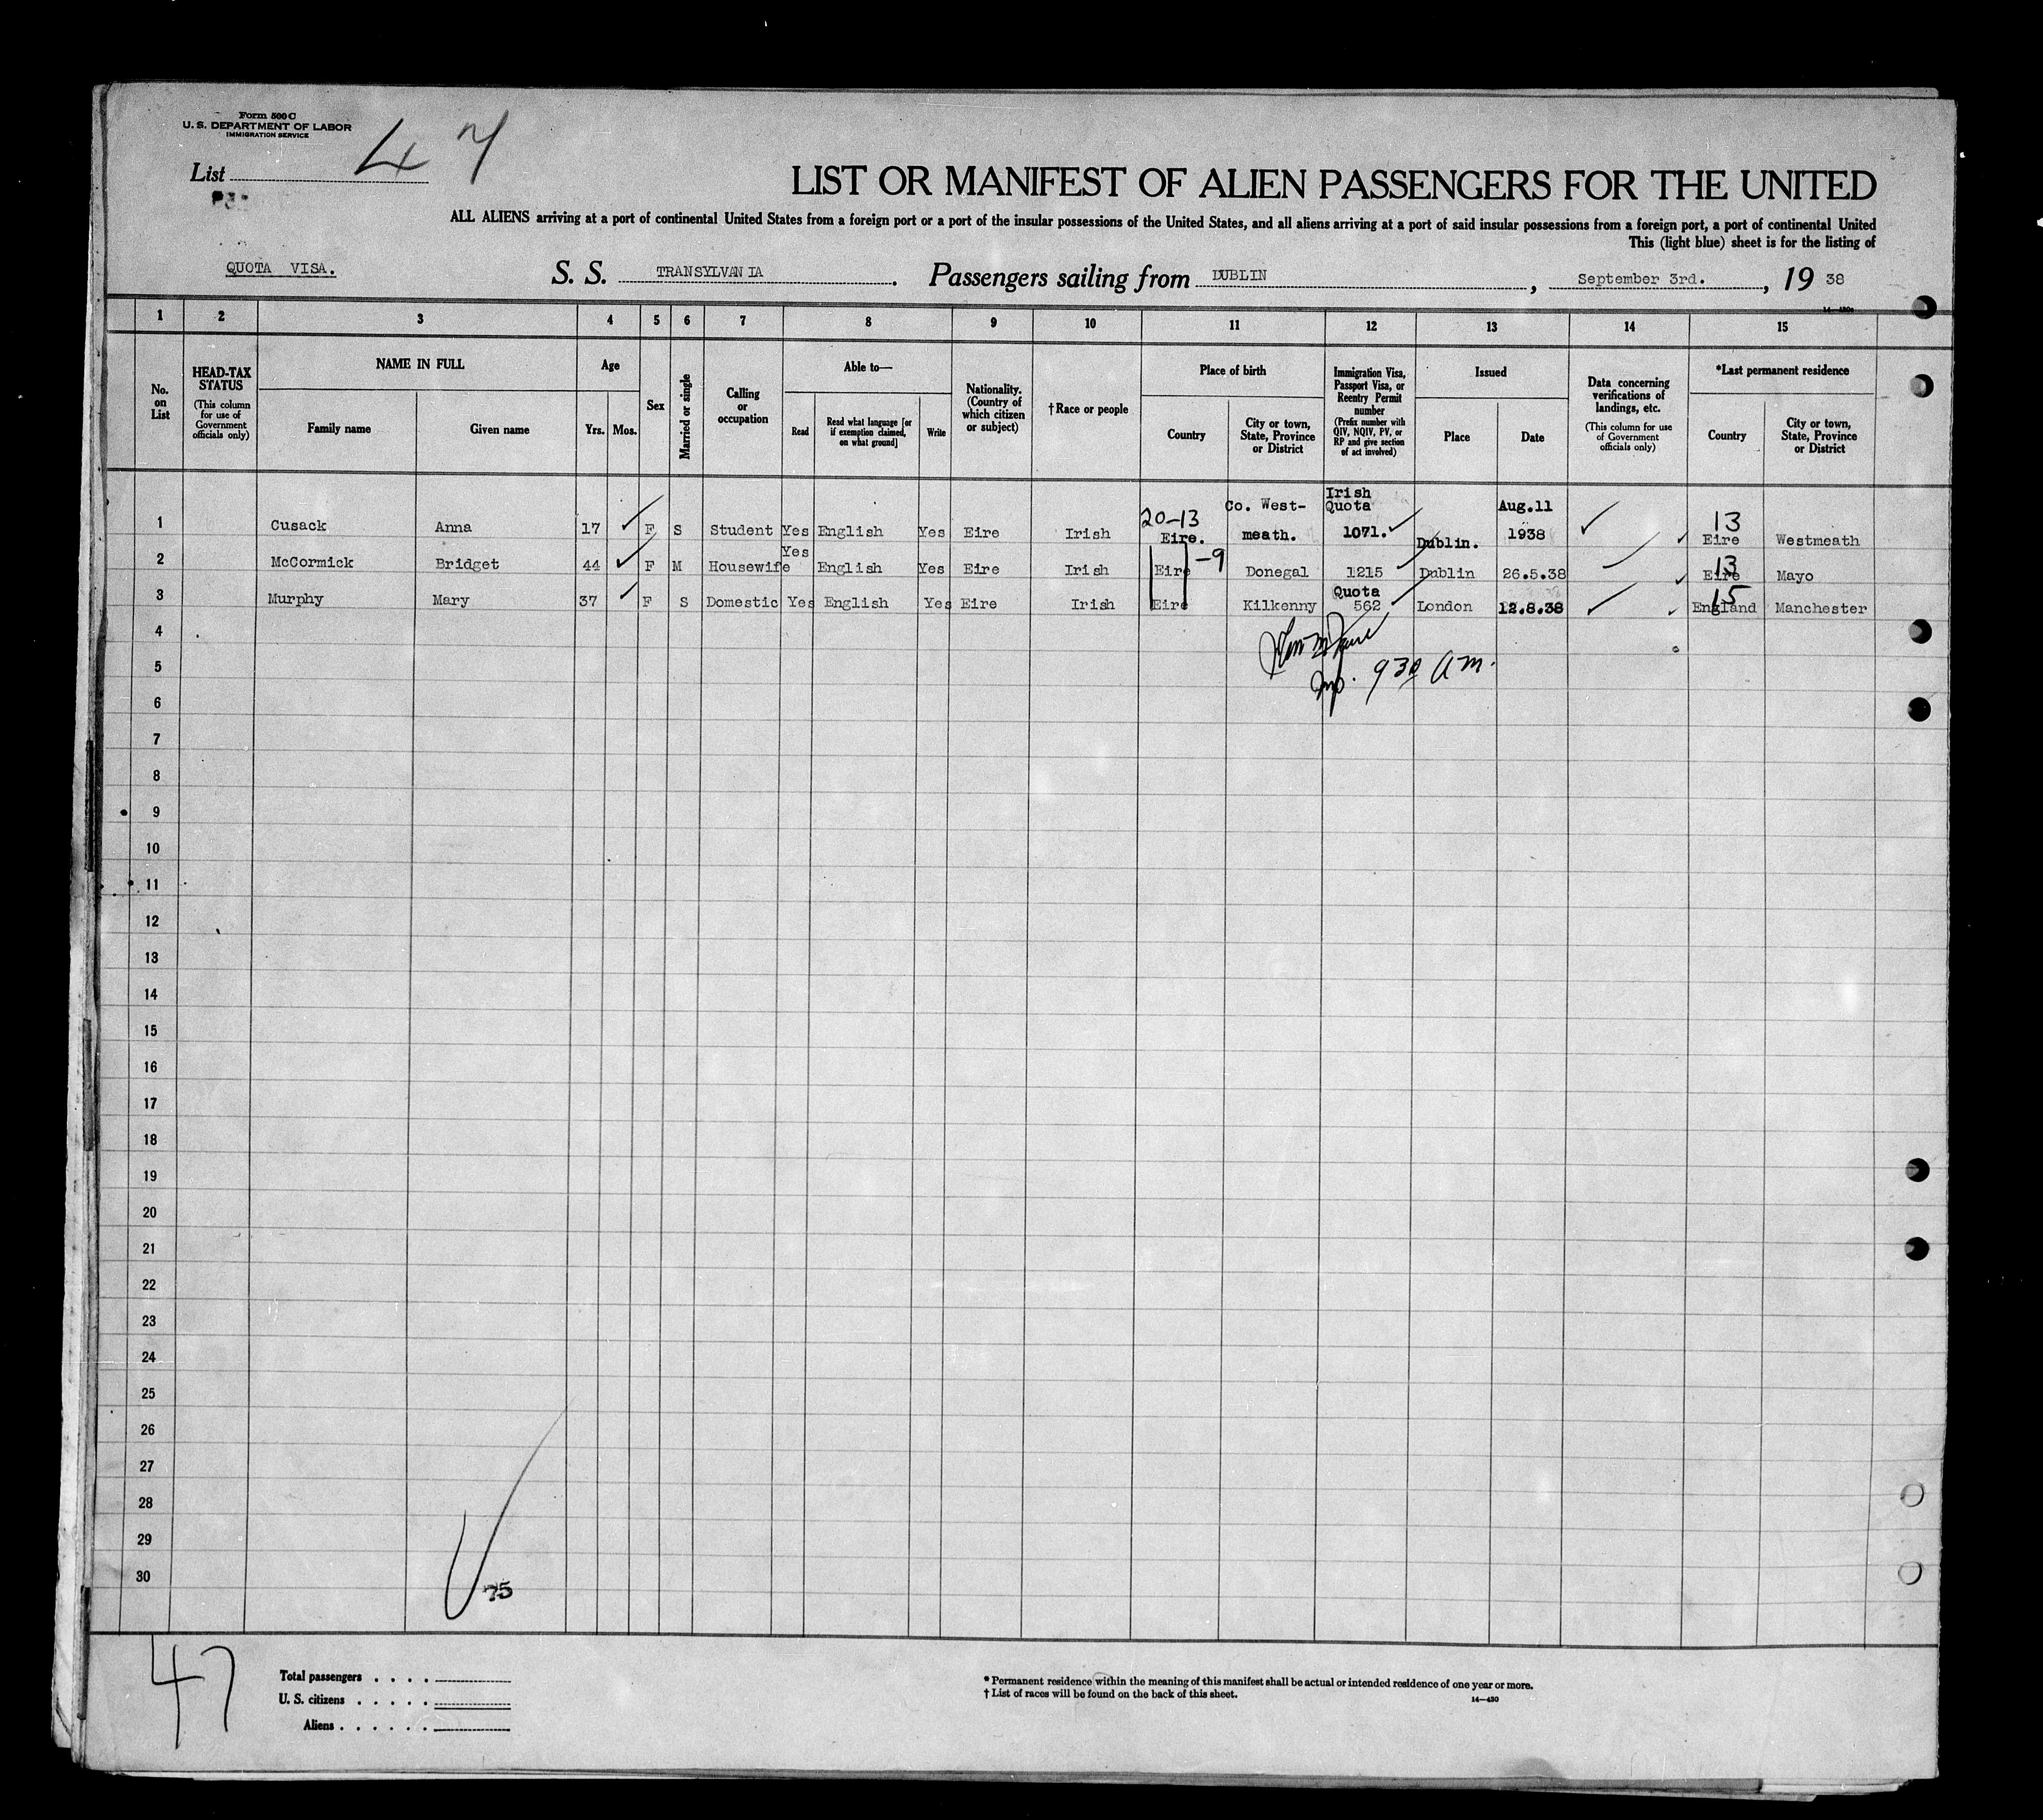 Form 500 C
U. S. DEPARTMENT OF LABOR
IMMIGRATION SERVICE
List 47
LIST OR MANIFEST OF ALIEN PASSENGERS FOR THE UNITED
ALL ALIENS arriving at a port of continental United States from a foreign port or a port of the insular possessions of the United States, and all aliens arriving at a port of said insular possessions from a foreign port, a port of continental United
This (light blue) sheet is for the listing of
QUOTA VISA. S. S. TRANSYLVANIA. Passengers sailing from DUBLIN, September 3rd., 19 38
1 2 3 4 5 6 7 8 9 10 11 12 13 14 15
No. on List
HEAD-TAX STATUS (This column for use of Government officials only)
NAME IN FULL
Family name Given name
Age
Yrs. Mos.
Sex
Married or single
Calling or occupation
Able to—
Read Read what language [or if exemption claimed, on what ground] Write
Nationality. (Country of which citizen or subject)
†Race or people
Place of birth
Country City or town, State, Province or District
Immigration Visa, Passport Visa, or Reentry Permit number (Prefix number with QIV, NQIV, PV, or RP and give section of act involved)
Issued
Place Date
Data concerning verifications of landings, etc. (This column for use of Government officials only)
*Last permanent residence
Country City or town, State, Province or District
1 Cusack Anna 17 F S Student Yes English Yes Eire Irish 20-13 Eire. Co. West-meath. Irish Quota 1071. Dublin. Aug.11 1938 13 Eire Westmeath
2 McCormick Bridget 44 F M Housewife Yes English Yes Eire Irish Eire -9 Donegal 1215 Dublin 26.5.38 13 Eire Mayo
3 Murphy Mary 37 F S Domestic Yes English Yes Eire Irish Eire Kilkenny Quota 562 London 12.8.38 15 England Manchester
4
5 930 AM.
6
7
8
9
10
11
12
13
14
15
16
17
18
19
20
21
22
23
24
25
26
27
28
29
30
75
47
Total passengers
U. S. citizens
Aliens
* Permanent residence within the meaning of this manifest shall be actual or intended residence of one year or more.
† List of races will be found on the back of this sheet.
14—430